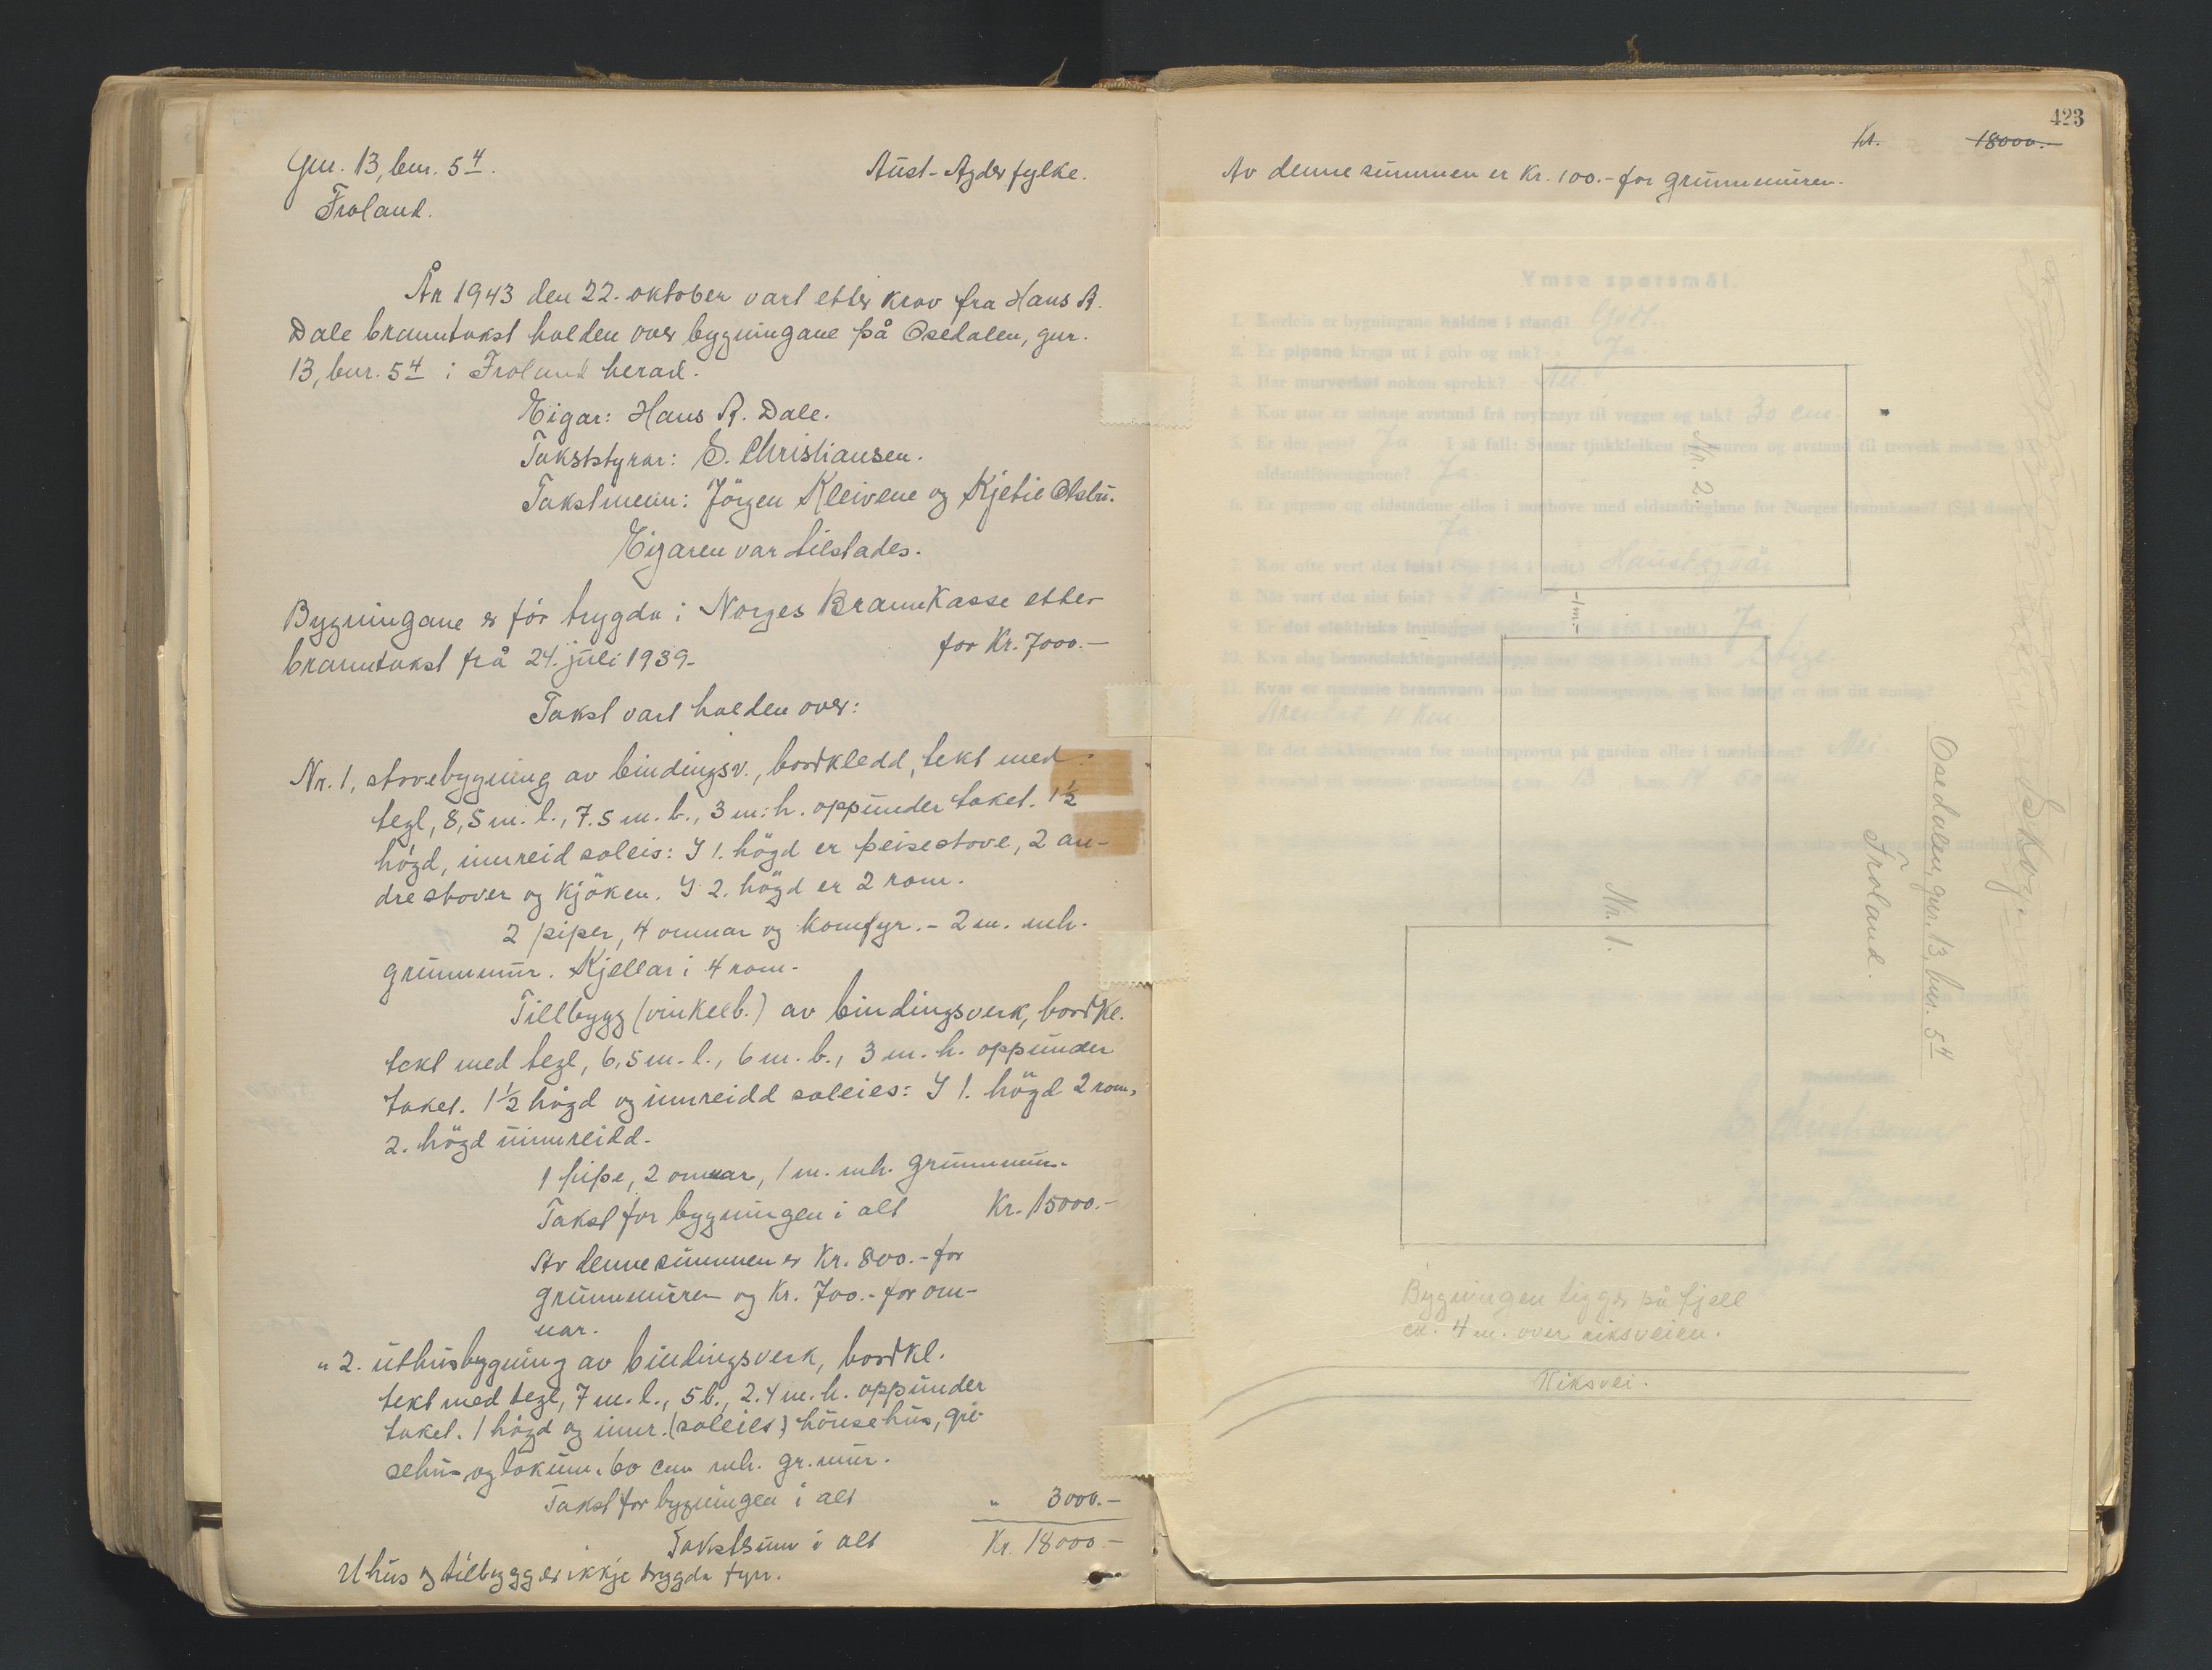 Gnr. 13, bnr. 5⁴.
Aust-Agder fylke.
Froland.
År 1943 den 22. oktober vart etter krav fra Hans R.
Dale branntakst halden over bygningane på Osedalen, gnr.
13, bnr. 5⁴ i Froland herad.
Eigar: Hans R. Dale.
Takststyrar: S. Christiansen.
Takstmenn: Jörgen Kleivene og Kjetil Otsbu.
Eigaren var tilstades.
Bygningane er för trygda i Norges Brannkasse etter
branntakst frå 24. juli 1939-
for Kr. 7000.-
Takst vart halden over:
Nr. 1, stovebygning av bindingsv., bordkledd, tekt med
tegl, 8,5 m. l., 7.5 m. b., 3 m. h. oppunder taket. 1½
högd, innreid soleis: I 1. högd er peisestove, 2 an-
dre stover og kjöken. I 2. högd er 2 rom.
2 piper, 4 omnar og komfyr. - 2 m. mh.
grunnmur. Kjellar i 4 rom.
Tillbygg (vinkelb.) av bindingsverk, bordkl.
tekt med tegl, 6,5 m. l., 6 m. b., 3 m. h. oppunder
taket. 1½ högd og innreidd soleies: I 1. högd 2 rom,
2. högd uinnreidd.
1 pipe, 2 omnar, 1 m. mh. grunnmur.
Takst for bygningen i alt Kr. 15000.-
Av denne summen er Kr. 800.- for
grunnmuren og Kr. 700.- for om-
nar.
" 2. uthusbygning av bindingsverk, bordkl.
tekt med tegl, 7 m. l., 5 b., 2.4 m. h. oppunder
taket. 1 högd og innr. (soleies) hönsehus, gri-
sehus og lokum. 60 cm mh. gr.mur.
Takst for bygningen i alt " 3000.-
Takstsum i alt Kr. 18000.-
Uhus og tilbygg er ikkje trygda fyrr.
423
Kr. 18000.-
Av denne summen er Kr. 100.- for grunnmuren.
Ymse spørsmål.
1. Korleis er bygningane haldne i stand? Godt.
2. Er pipene kraga ut i golv og tak? Ja.
3. Har murverket nokon sprekk? Nei.
4. Kor stor er minste avstand frå røykrøyr til vegger og tak? 30 cm.
5. Er der peis? Ja I så fall: Svarar tjukkleiken på muren og avstand til treverk med
eldstadreglane? Ja.
6. Er pipene og eldstadene elles i samhøve med eldstadreglane for Norges Brannkasse?
Ja
7. Kor ofte vert det feia? Haust og vår
8. Når vart det sist feia?
9. Er det elektriske innlegget Ja
10. Kva slag brannsløkkingsreidskaper Stige.
11. Kvar er næraste brannvern som har motorsprøyte, og kor langt er det dit
Arendal 11 km
12. Er det sløkkjarvatn for motorsprøyta på garden eller i nærleiken? Nei.
Nr. 2.
1 m.
Nr. 1.
Osedalen, gnr. 13, bnr. 5⁴
Froland.
Skog.
Bygningen ligger på fjell
ca. 4 m. over riksveien.
Riksvei.